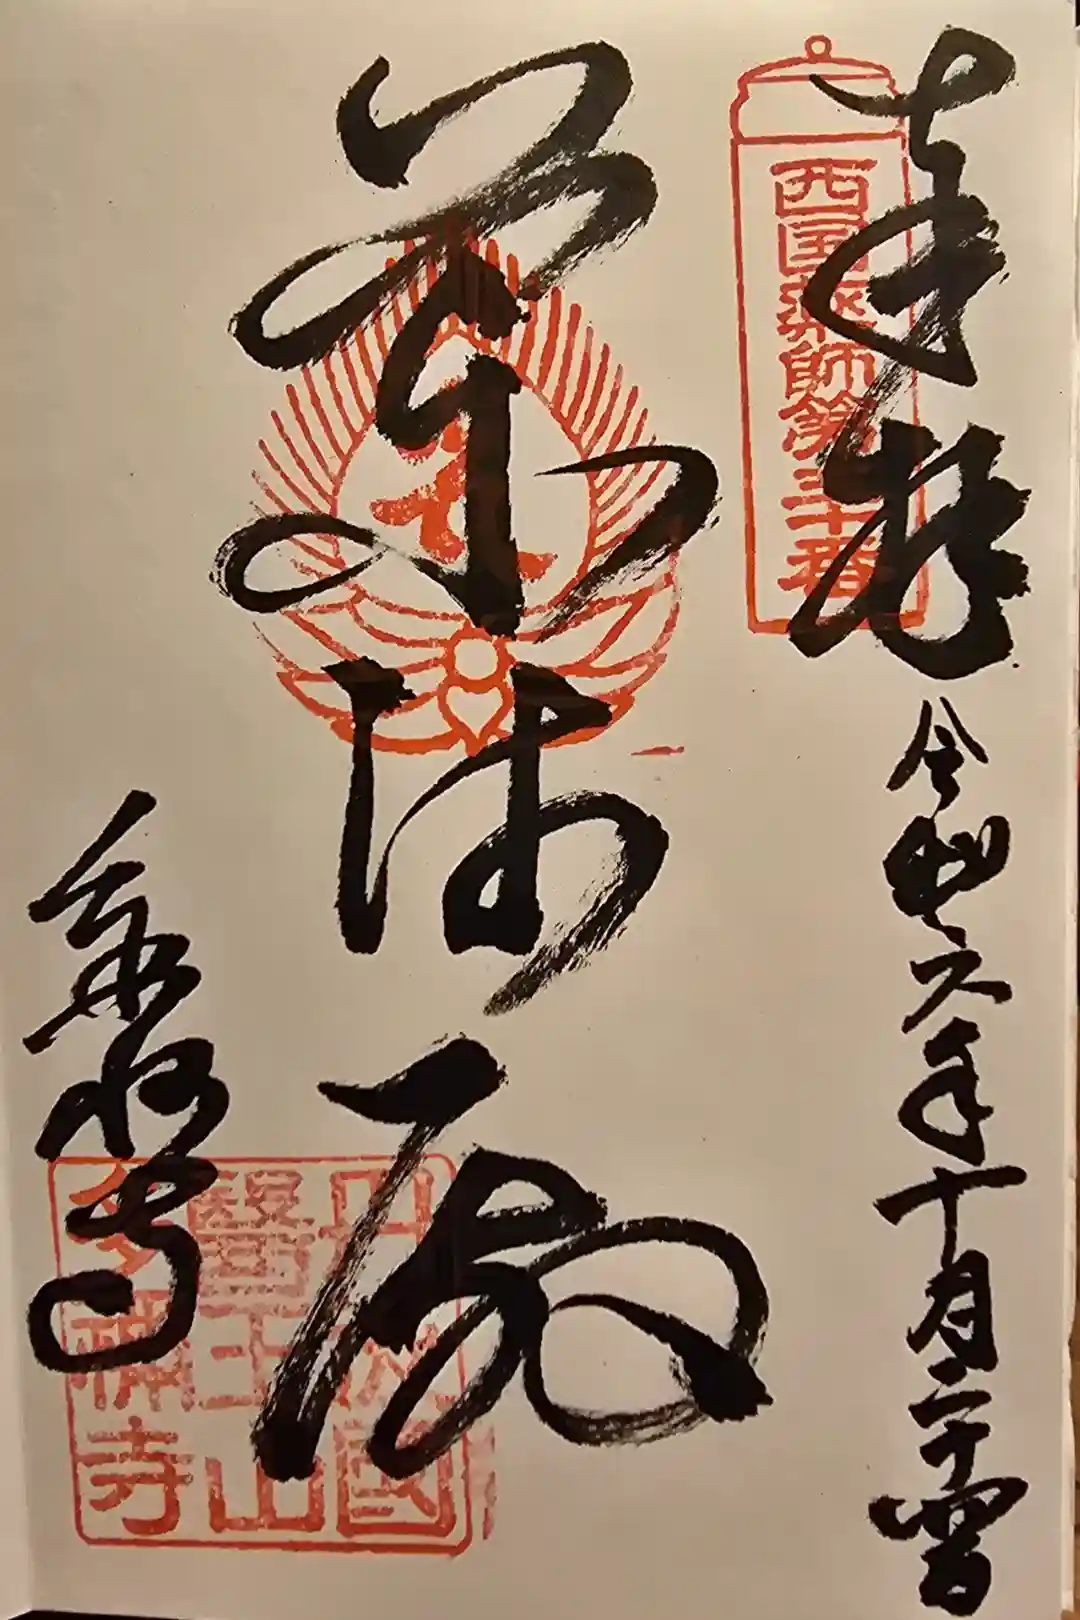 奉拝
令和六年十月二十四日
西国薬師第三十番
薬師殿
多祢寺
丹後國
醫王山
多禰寺